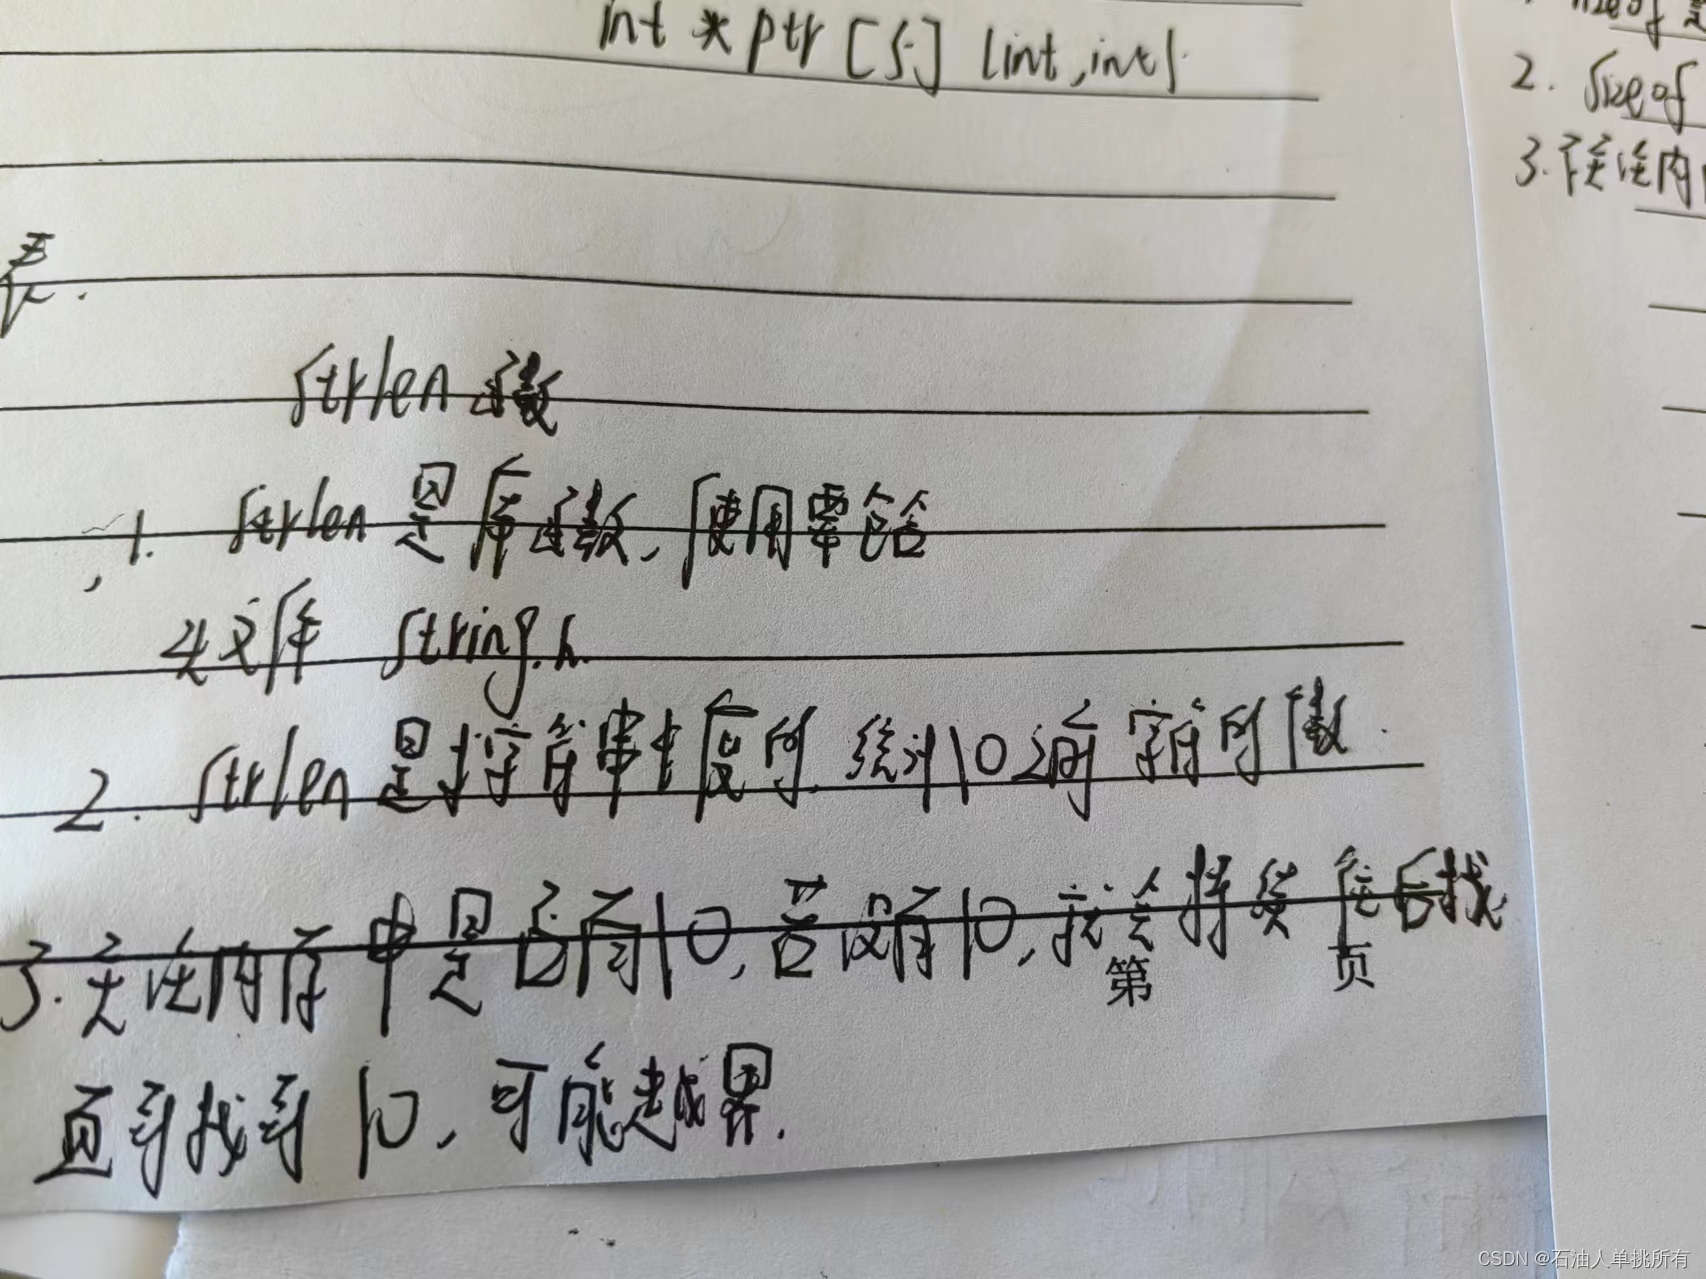 int *ptr [5] (int,int)
strlen 函数
1. strlen 是库函数,使用要包含
头文件 string.h.
2. strlen 是求字符串长度的,统计\0之前字符的个数.
3. 关注内存中是否有\0,若没有\0,就会持续往后找
第 页
直到找到\0,可能越界.
2. sizeof
3. 不关注内
CSDN @石油人单挑所有